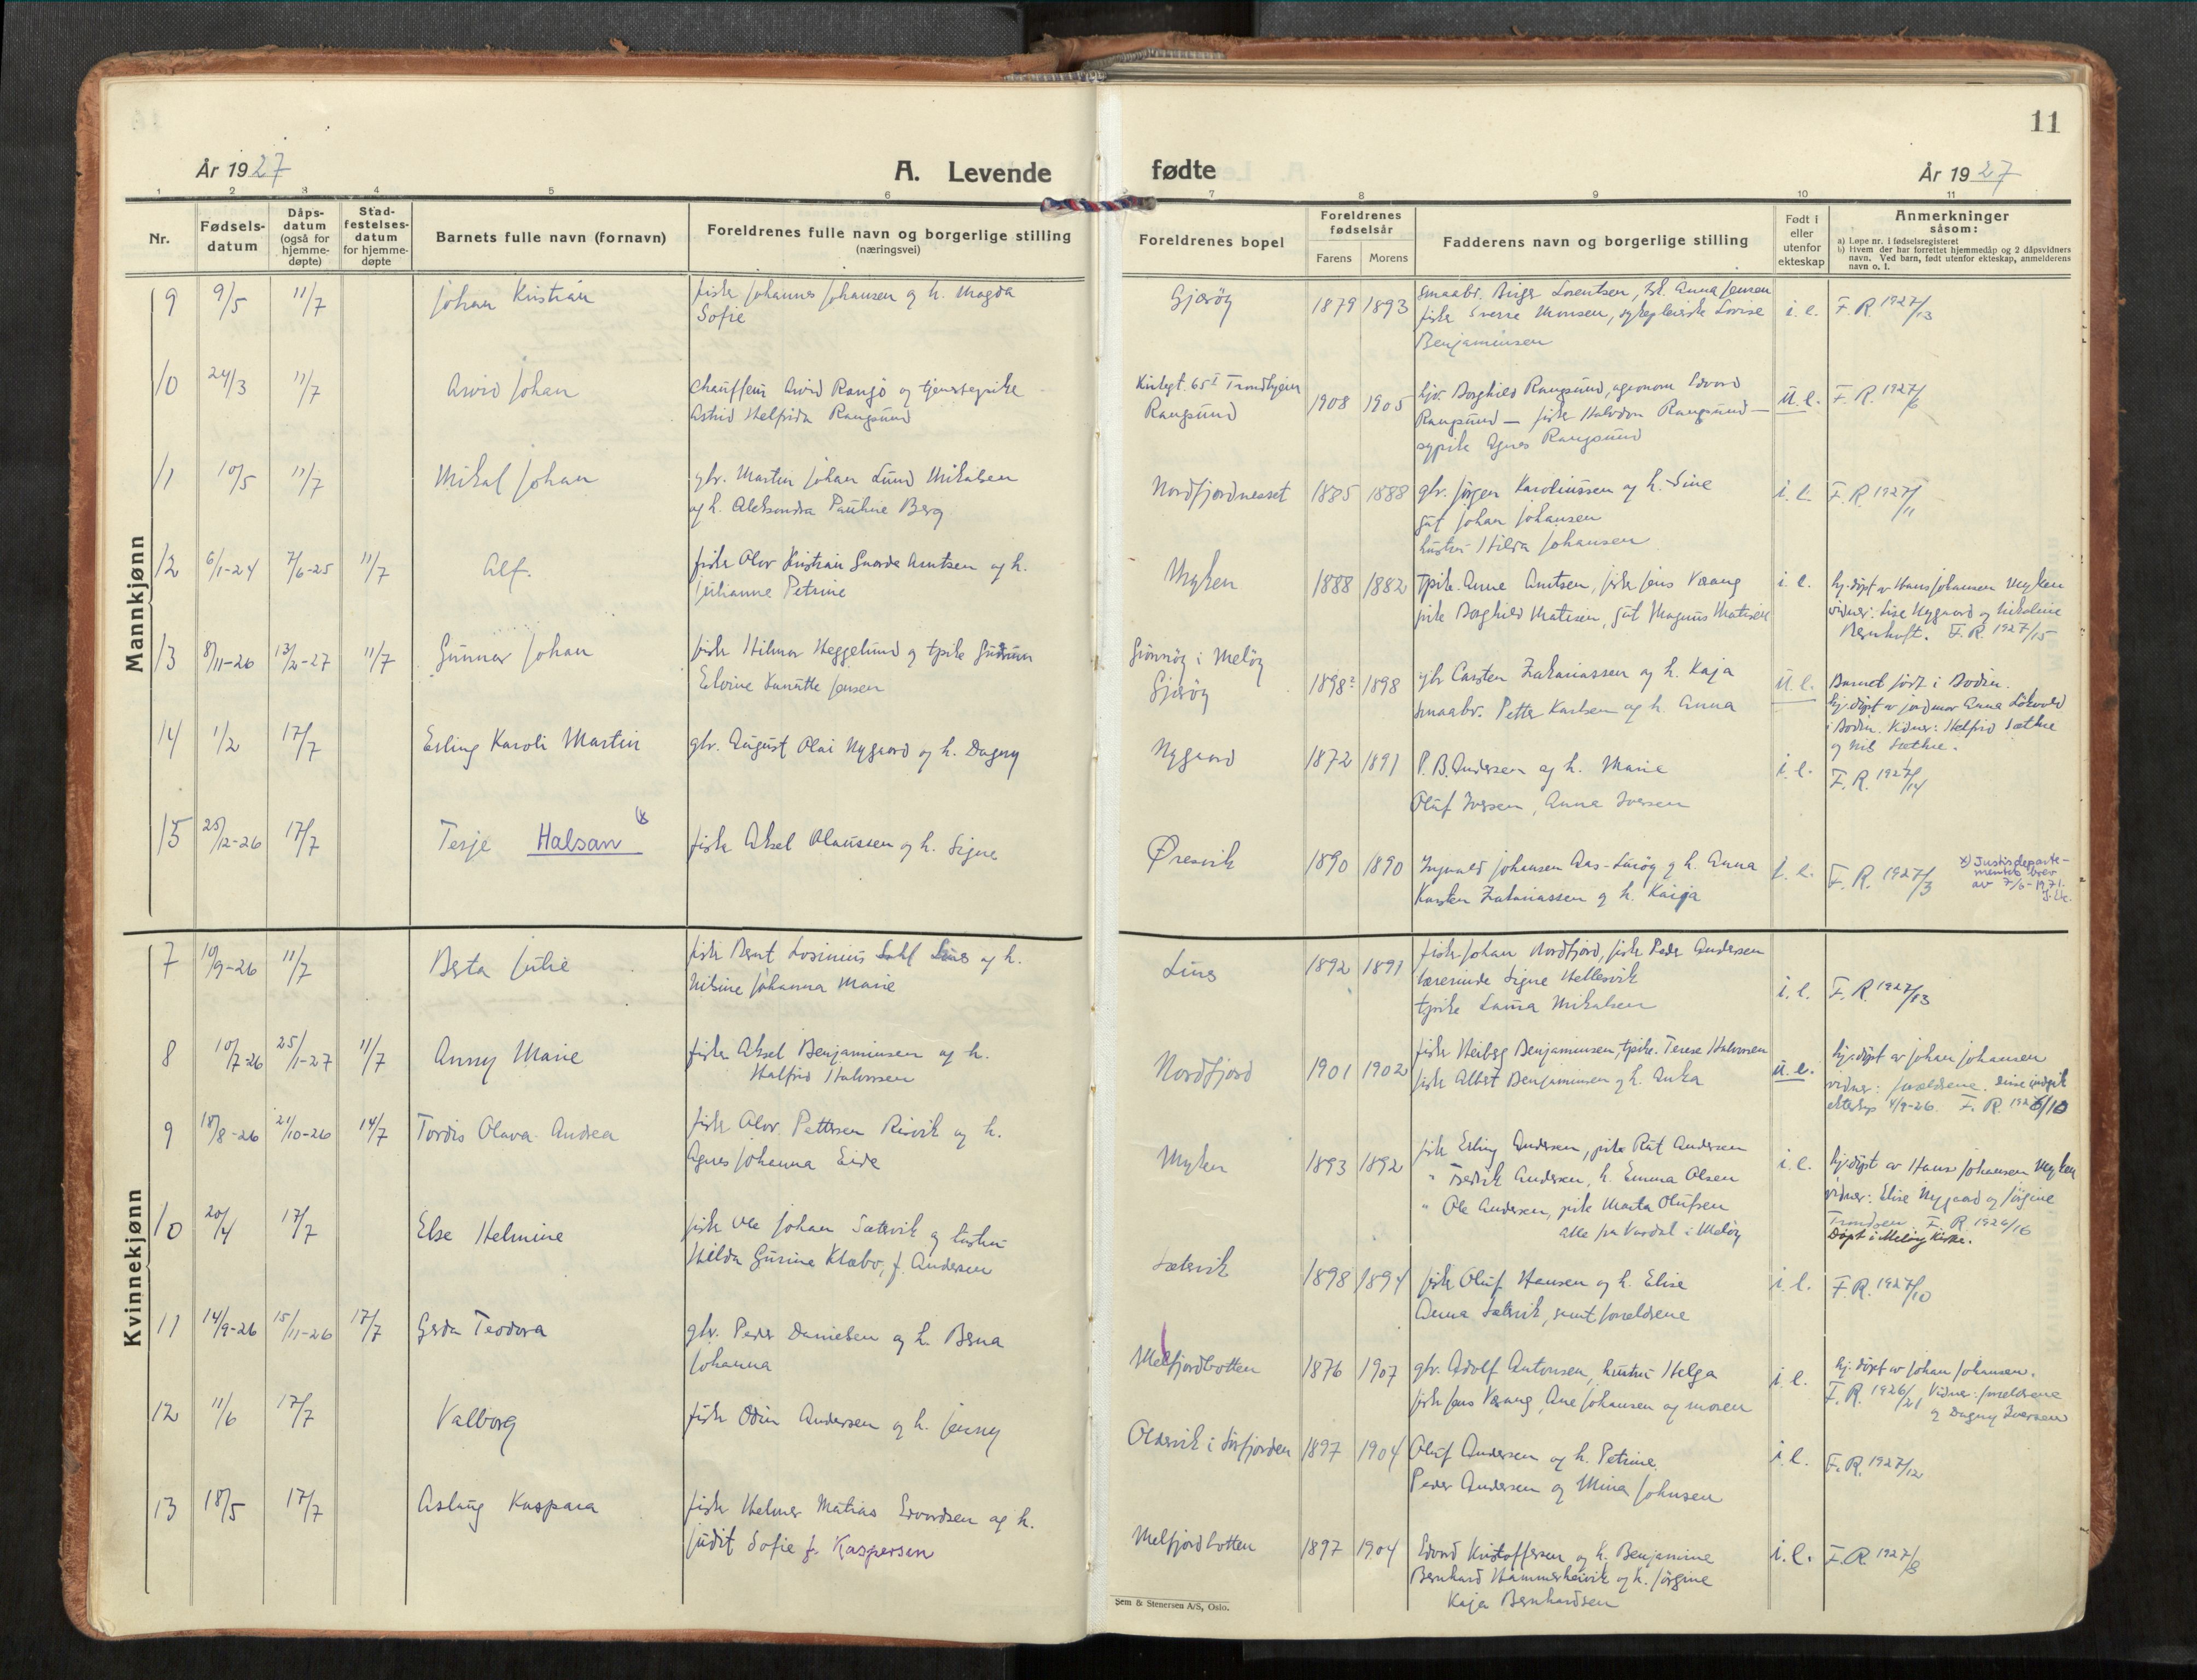 11
År 1927 A. Levende fødte År 1927
1 2 3 4 5 6 7 8 9 10 11
Nr. Fødsels-datum Dåps-datum (også for hjemme-døpte) Stad-festelses-datum for hjemme-døpte Barnets fulle navn (fornavn) Foreldrenes fulle navn og borgerlige stilling (næringsvei) Foreldrenes bopel Foreldrenes fødselsår Farens Morens Fadderens navn og borgerlige stilling Født i eller utenfor ekteskap Anmerkninger såsom:
a) Løpe nr. i fødselsregisteret
b) Hvem der har forrettet hjemmedåp og 2 dåpsvidners navn. Ved barn, født utenfor ekteskap, anmelderens navn o. l.
Mannkjønn
9 9/5 11/7 Johan Kristian fisker Johannes Johansen og h. Magda Gjærøy 1879 1893 smaabr. Birger Lorentsen, Anna Jensen i. e. F. R. 1927/13
Sofie fisker Sverre Monsen, sykepleierske Lovise
Benjaminsen
10 24/3 11/7 Arvid Johan chauffeur Arvid Rangø og tjenestepike 65 I Trondhjem 1908 1905 Borghild Rangsund, agronom Edvard u. e. F. R. 1927/6
Astrid Helfrida Rangsund Rangsund Rangsund — fisker Halvdan Rangsund —
sypike Agnes Rangsund
11 10/5 11/7 Mikal Johan gbr. Martin Johan Lund Mikalsen Nordfjordnesset 1885 1888 gbr. Jørgen Karoliussen og h. Sine i. e. F. R. 1927/11
og h. Aleksandra Pauline Berg gut Johan Johansen
hustru Hilda Johansen
12 6/1-24 7/6-25 11/7 Alf. fisker Olav Kristian Arntsen og h. Myken 1888 1882 Tpike Anne Arntsen, fisker Jens Værang i. e. hj. døpt av Hans Johansen Myken
Julianne Petrine pike Borghild Matisen, gut Magnus Matisen vidner: Lise Nygaard og Nikoline
Bernhoft. F. R. 1927/15
13 8/11-26 13/2-27 11/7 Gunnar Johan fisker Hilmar Heggelund og tpike Gudrun Grønnøy i Meløy 1898 1898 gbr Carsten Zakariassen og h. Kaja u. e. Barnet født i Bodin.
Elvine Jensen Gjærøy smaabr. Petter Karlsen og h. Anna hj. døpt av jordmor Anna Løkvold
i Bodin. Vidner: Helfrid Sæthre
og Nils Sæthre.
14 1/2 17/7 Erling Karoli Martin gbr. August Olai Nygaard og h. Dagny Nygaard 1872 1891 P. B. Andersen og h. Marie i. e. F. R. 1927/14
Oluf Iversen, Anna Iversen
15 25/12-26 17/7 Terje Halsan x) fisker Aksel Olaussen og h. Signe Øresvik 1890 1890 Ingvald Johansen Aas-Lurøy og h. Anna i. e. F. R. 1927/3 x) Justisdeparte-
Karsten Zakariassen og h. Kaija mentets brev
av 7/6-1971.
Kvinnekjønn
7 10/9-26 11/7 Berta Julie fisker Bernt og h. Lines 1892 1891 fisker Johan Nordfjord, fisker Peder Andersen i. e. F. R. 1927/13
Nilsine Johanna Marie lærerinde Signe Hellesvik
tpike Laura Mikalsen
8 10/7-26 25/1-27 11/7 Anny Marie fisker Aksel Benjaminsen og h. Nordfjord 1901 1902 fisker Heiberg Benjaminsen, tpike. Terese Halvorsen u. e. hj. døpt av Johan Johansen
Halfrid Halvorsen fisker Albert Benjaminsen og h. Anka vidner: forældrene. disse indgik
ekteskap 4/9-26. F. R. 1926/10
9 18/8-26 21/10-26 14/7 Tordis Olava Andrea fisker Olav Pettersen Risvik og h. Myken 1893 1892 fisker Erling Andersen, pike Rut Andersen i. e. hj. døpt av Hans Johansen Myken
Agnes Johanna Eide " Fredrik Andersen, h. Emma Olsen vidner: Elise Nygaard og Jørgine
" Ole Andersen, pike Marta Olufsen Trondsen. F. R. 1926/16
alle fra Vardal i Meløy Døpt i Meløy Kirke.
10 20/4 17/7 Else Helmine fisker Ole Johan Sætervik og hustru Sætervik 1898 1894 fisker Oluf Hansen og h. Elise i. e. F. R. 1927/10
Hilda Gurine Klæbo, f. Andersen Anna Sætervik, samt forældrene
11 14/9-26 15/11-26 17/7 Gerda Teodora gbr. Peder Danielsen og h. Berna Melfjordbotten 1876 1907 gbr. Adolf Antonsen, hustru Helga i. e. hj. døpt av Johan Johansen.
Johanna fisker Jens Værang, Ane Johansen og moren F. R. 1926/21 Vidner: forældrene
og Dagny Iversen
12 11/6 17/7 Valborg fisker Odin Andersen og h. Jenny Oldervik i Sørfjorden 1897 1904 Oluf Andersen og h. Petrine i. e. F. R. 1927/12
Peder Andersen og Mina Johnsen
13 18/5 17/7 Aslaug Kaspara fisker Helmer Matias Edvardsen og h. Melfjordbotten 1897 1904 Edvard Kristoffersen og h. Benjamine i. e. F. R. 1927/8
Judit Sofie f. Kaspersen Bernhard Hammerheivik og h. Jørgine
Kaja Bernhardsen
Sem & Stenersen A/S, Oslo.